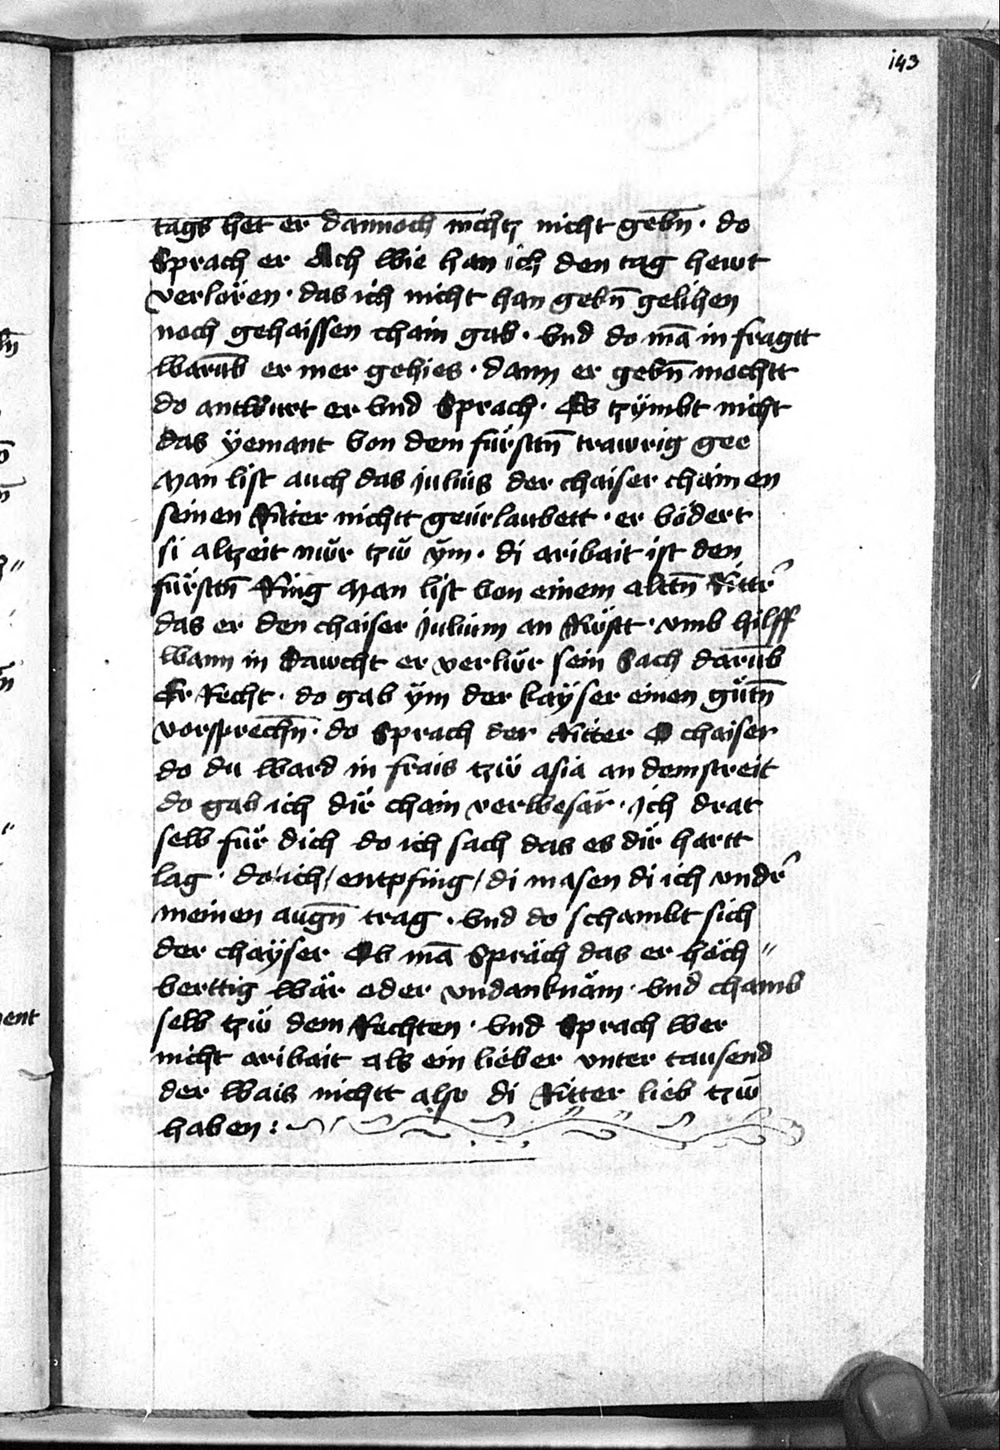 143
tags het er dannoch nichtz nicht gebn̄ · do
Sprach er Ach wie han ich den tag hewt
verloren · das ich nicht han gebn̄ gelihen
noch gehaissen chain gab · vnd do mā in fragtt
warūb er mer gehies · dann er gebn̄ mochtt
do antwurt er vnd Sprach · Es tzÿmbt nicht
das ÿemant von dem fürsttn̄ trawrig gee
Man list auch das julius der chaiser chainen
seinen Ritter nichtt geürlaubett · er vodert
si altzeit nür tzü ÿm · di aribait ist den
fürsttn̄ Ring Man list von einem alttn̄ Rittr
das er den chaiser julium an Rüftt · vmb hilff
wann in Dawcht er verlür sein Sach darūb
Er Recht · do gab ÿm der kaÿser einen gütn̄
vorsprechn̄ · do Sprach der Ritter O chaiser
do du ward in frais tzü asia an dem streit
do gab ich dir chain verwesär · ich drat
selb für dich do ich sach das es dir hartt
lag · do ich / entpfing / di masen di ich vndr
meinen augn̄ trag · vnd do schambt sich
der chaÿser Ob mā Spräch das er hoch〃
verttig wär oder vndanknäm · vnd chamb
selb tzü dem Rechten · vnd Sprach wer
nicht aribait als ein lieber vnter tausend
der wais nichtt also di Ritter lieb tzü
haben :